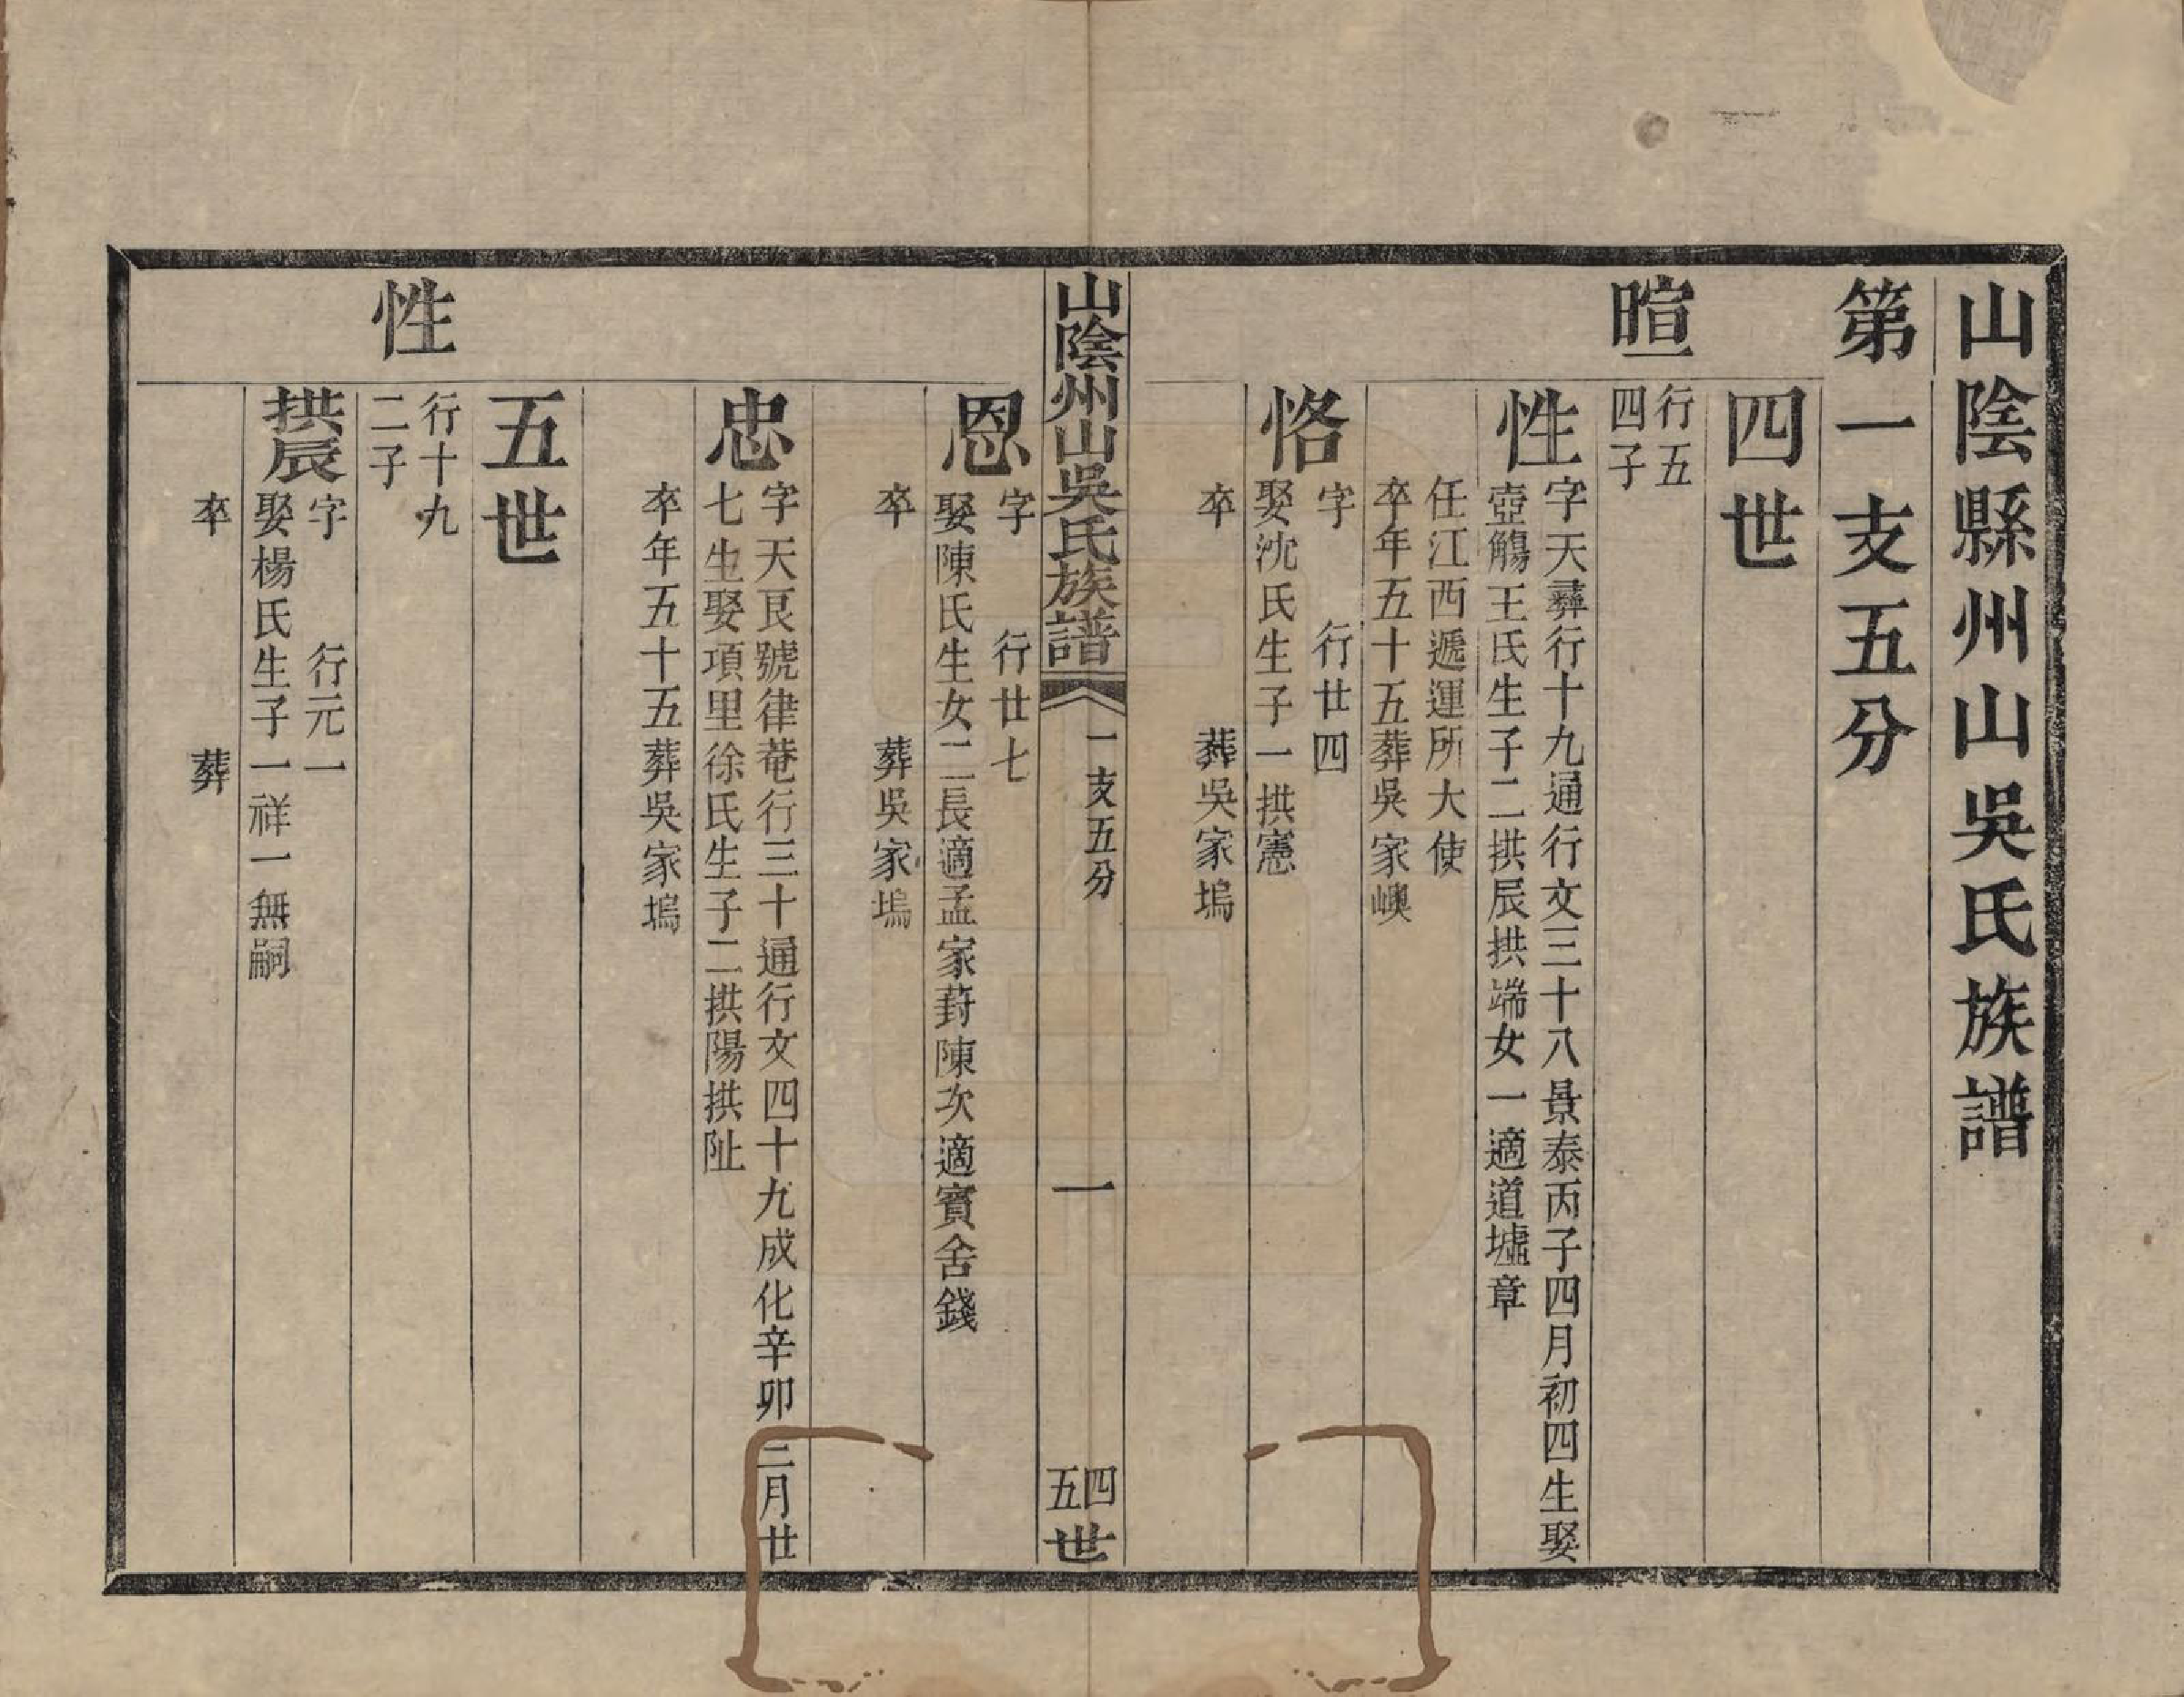 山陰縣州山吳氏族譜
第一支五分
四世
暄一
行五
四子
性
字天彝行十九通行文三十八景泰丙子四月初四生娶
壺觴王氏生子二拱辰拱端女一適道墟章
任江西遞運所大使
卒年五十五葬吳家嶴
恪
字 行廿四
娶沈氏生子一拱憲
卒 葬吳家塢
山陰州山吳氏族譜
一支五分
一
四五世
恩
字 行廿七
娶陳氏生女二長適孟家葑陳次適賓舍錢
卒 葬吳家塢
忠
字天艮號律菴行三十通行文四十九成化辛卯二月廿
七生娶項里徐氏生子二拱陽拱阯
卒年五十五葬吳家塢
五世
性
行十九
二子
拱辰
字 行元一
娶楊氏生子一祥一無嗣
卒 葬